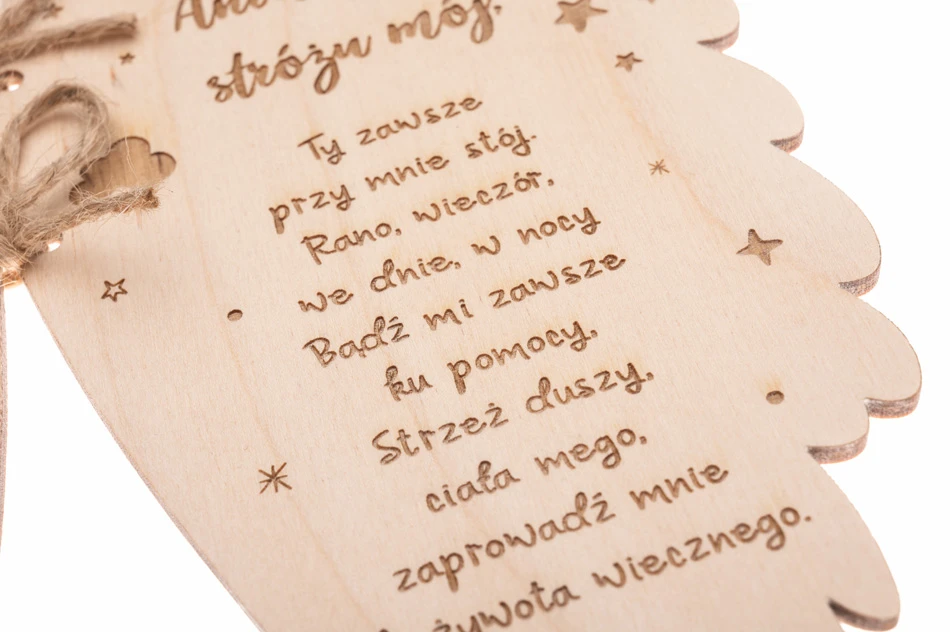 stróżu mój,
Ty zawsze
przy mnie stój.
Rano, wieczór,
we dnie, w nocy
Bądź mi zawsze
ku pomocy,
Strzeż duszy,
ciała mego,
zaprowadź mnie
żywota wiecznego.